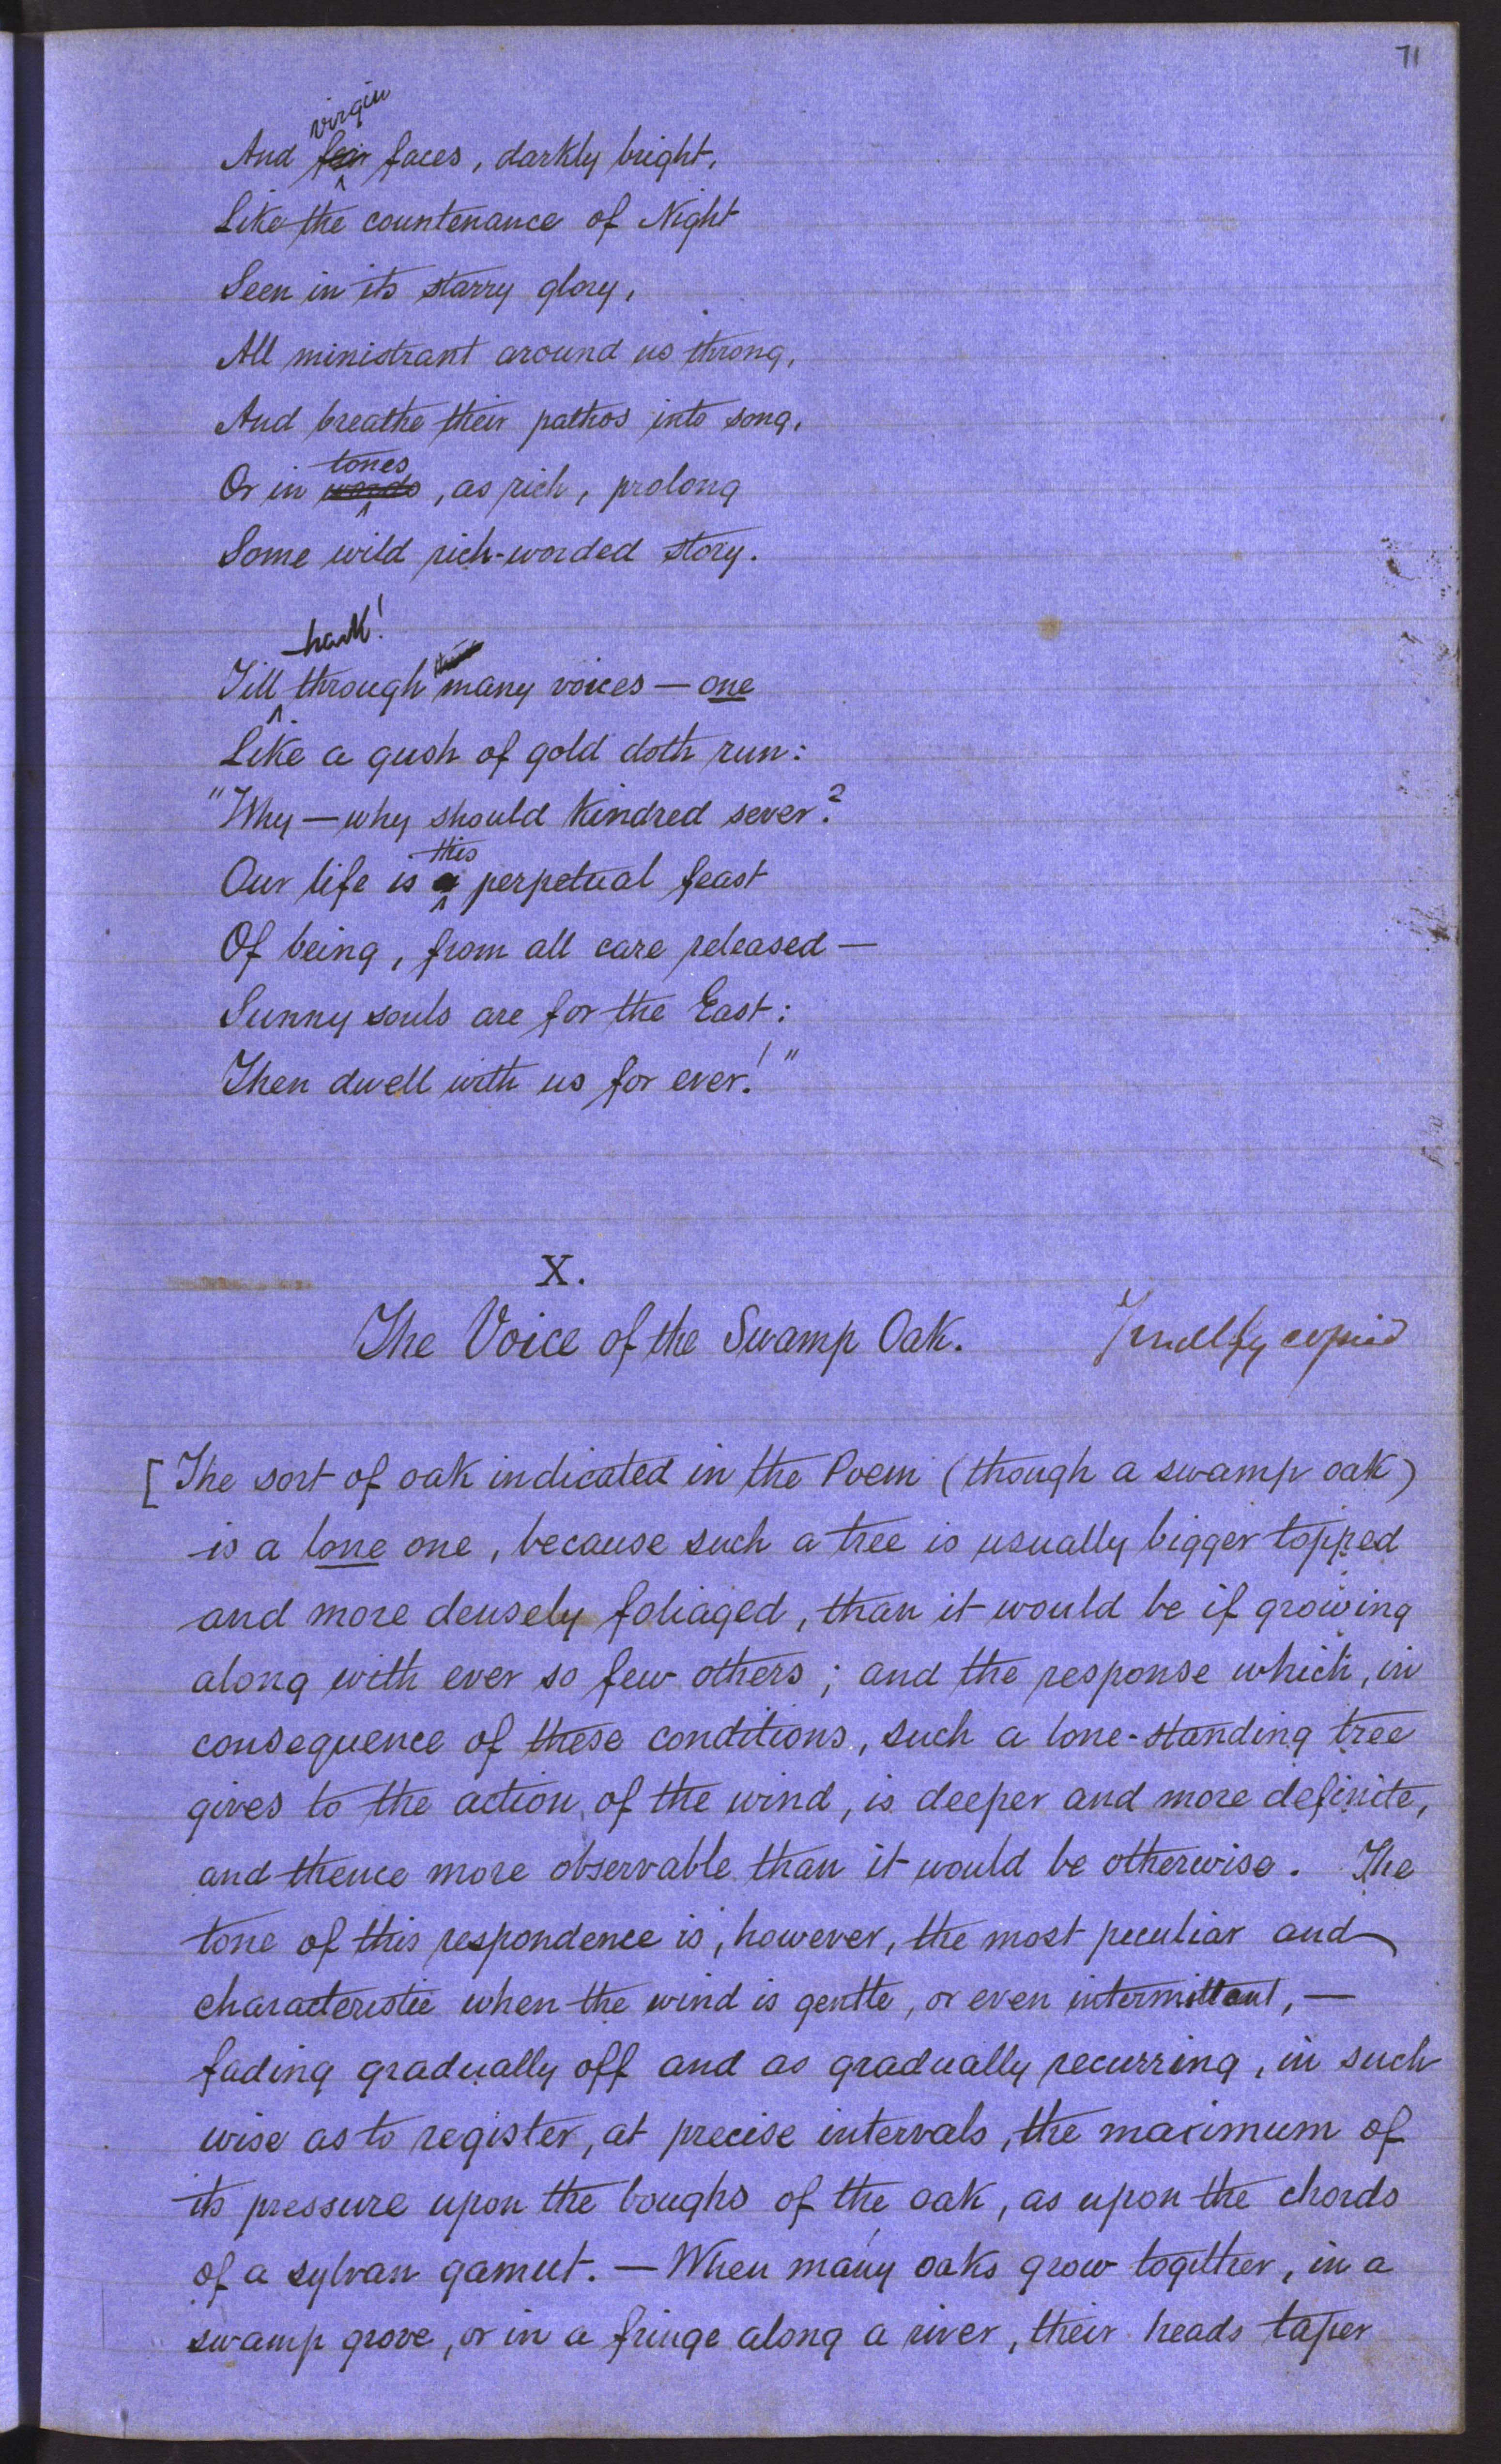 71
virgin
And fair faces, darkly bright,
Like the countenance of Night
Seen in its starry glory,
All ministrant around us throng,
And breathe their pathos into song,
tones
Or in words, as rich, prolong
Some wild rich-worded story.
hark!
Till through many voices — one
Like a gush of gold doth run:
"Why — why should kindred sever?
this
Our life is a perpetual feast
Of being, from all care released —
Sunny souls are for the East:
Then dwell with us for ever!"
X.
The Voice of the Swamp Oak.
copied
[The sort of oak indicated in the Poem (though a swamp oak)
is a lone one, because such a tree is usually bigger topped
and more densely foliaged, than it would be if growing
along with ever so few others; and the response which, in
consequence of these conditions, such a lone-standing tree
gives to the action of the wind, is deeper and more definite,
and thence more observable than it would be otherwise. The
tone of this respondence is, however, the most peculiar and
characteristic when the wind is gentle, or even intermittant, —
fading gradually off and as gradually recurring, in such
wise as to register, at precise intervals, the maximum of
its pressure upon the boughs of the oak, as upon the chords
of a sylvan gamut. — When many oaks grow together, in a
swamp grove, or in a fringe along a river, their heads taper